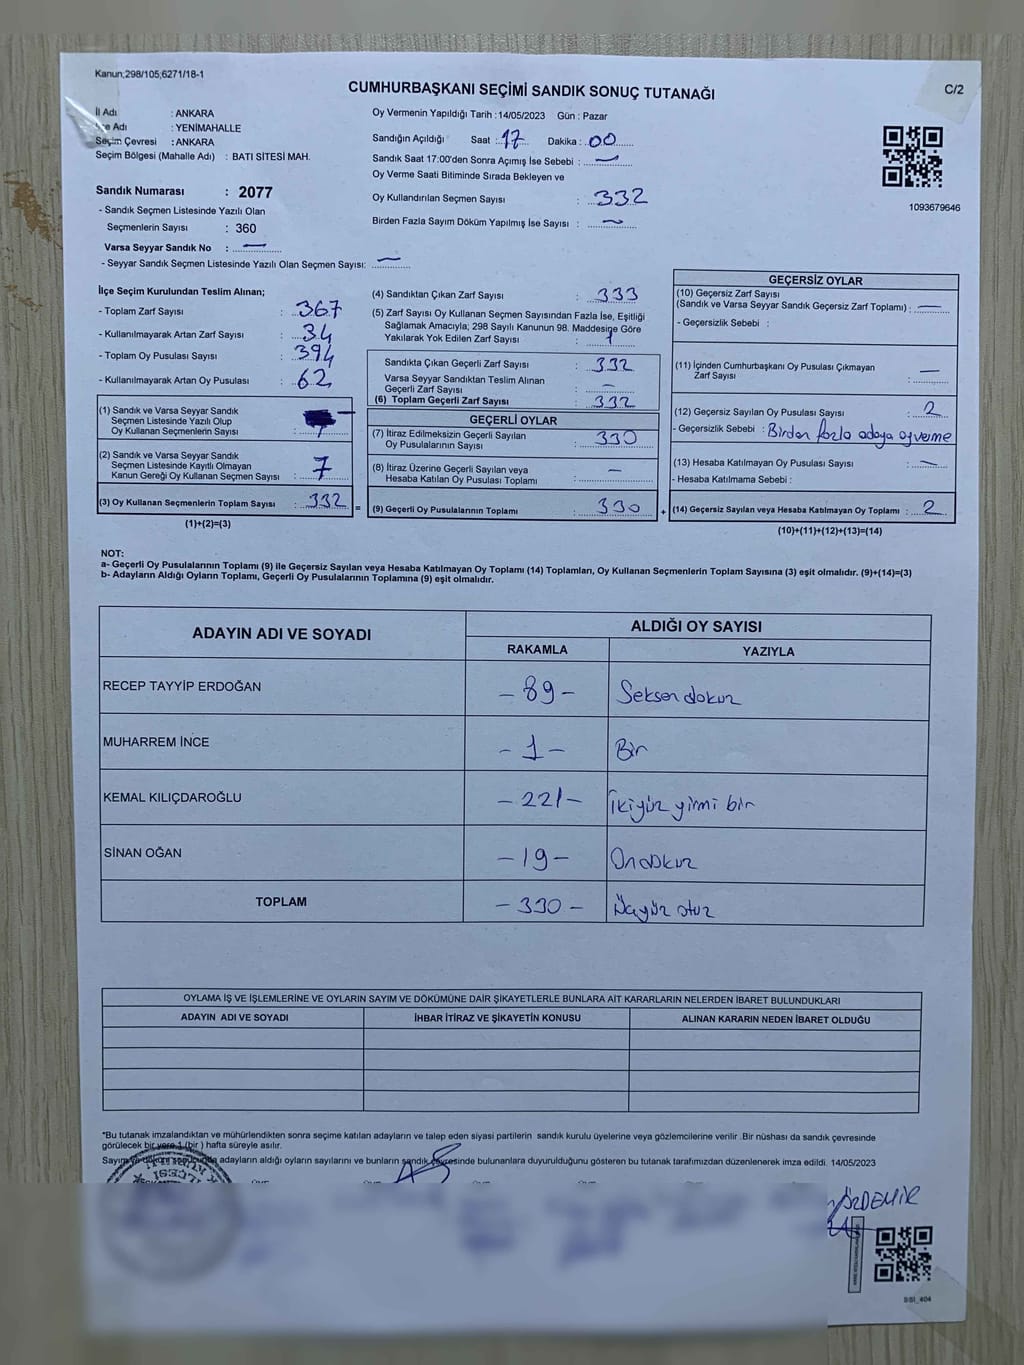 Kanun;298/105,6271/18-1
CUMHURBAŞKANI SEÇİMİ SANDIK SONUÇ TUTANAĞI
C/2
İl Adı : ANKARA
Adı : YENİMAHALLE
Seçim Çevresi : ANKARA
Seçim Bölgesi (Mahalle Adı) : BATI SİTESİ MAH.
Sandık Numarası : 2077
- Sandık Seçmen Listesinde Yazılı Olan
Seçmenlerin Sayısı : 360
Varsa Seyyar Sandık No : —
- Seyyar Sandık Seçmen Listesinde Yazılı Olan Seçmen Sayısı: —
Oy Vermenin Yapıldığı Tarih : 14/05/2023 Gün : Pazar
Sandığın Açıldığı Saat : 17 Dakika : 00
Sandık Saat 17:00'den Sonra Açımış İse Sebebi : —
Oy Verme Saati Bitiminde Sırada Bekleyen ve
Oy Kullandırılan Seçmen Sayısı : 332
Birden Fazla Sayım Döküm Yapılmış İse Sayısı : —
1093679646
İlçe Seçim Kurulundan Teslim Alınan;
- Toplam Zarf Sayısı : 367
- Kullanılmayarak Artan Zarf Sayısı : 34
- Toplam Oy Pusulası Sayısı : 394
- Kullanılmayarak Artan Oy Pusulası : 62
(1) Sandık ve Varsa Seyyar Sandık
Seçmen Listesinde Yazılı Olup
Oy Kullanan Seçmenlerin Sayısı :
(2) Sandık ve Varsa Seyyar Sandık
Seçmen Listesinde Kayıtlı Olmayan
Kanun Gereği Oy Kullanan Seçmen Sayısı : 7
(3) Oy Kullanan Seçmenlerin Toplam Sayısı : 332
(1)+(2)=(3)
=
(4) Sandıktan Çıkan Zarf Sayısı : 333
(5) Zarf Sayısı Oy Kullanan Seçmen Sayısından Fazla İse, Eşitliği
Sağlamak Amacıyla; 298 Sayılı Kanunun 98. Maddesine Göre
Yakılarak Yok Edilen Zarf Sayısı : 1
Sandıkta Çıkan Geçerli Zarf Sayısı : 332
Varsa Seyyar Sandıktan Teslim Alınan
Geçerli Zarf Sayısı : —
(6) Toplam Geçerli Zarf Sayısı : 332
GEÇERLİ OYLAR
(7) İtiraz Edilmeksizin Geçerli Sayılan
Oy Pusulalarının Sayısı : 330
(8) İtiraz Üzerine Geçerli Sayılan veya
Hesaba Katılan Oy Pusulası Toplamı : —
(9) Geçerli Oy Pusulalarının Toplamı : 330
+
GEÇERSİZ OYLAR
(10) Geçersiz Zarf Sayısı
(Sandık ve Varsa Seyyar Sandık Geçersiz Zarf Toplamı) : —
- Geçersizlik Sebebi :
(11) İçinden Cumhurbaşkanı Oy Pusulası Çıkmayan
Zarf Sayısı : —
(12) Geçersiz Sayılan Oy Pusulası Sayısı : 2
- Geçersizlik Sebebi : Birden fazla adaya oy verme
(13) Hesaba Katılmayan Oy Pusulası Sayısı : —
- Hesaba Katılmama Sebebi :
(14) Geçersiz Sayılan veya Hesaba Katılmayan Oy Toplamı : 2
(10)+(11)+(12)+(13)=(14)
NOT:
a- Geçerli Oy Pusulalarının Toplamı (9) ile Geçersiz Sayılan veya Hesaba Katılmayan Oy Toplamı (14) Toplamları, Oy Kullanan Seçmenlerin Toplam Sayısına (3) eşit olmalıdır. (9)+(14)=(3)
b- Adayların Aldığı Oyların Toplamı, Geçerli Oy Pusulalarının Toplamına (9) eşit olmalıdır.
ADAYIN ADI VE SOYADI ALDIĞI OY SAYISI
RAKAMLA YAZIYLA
RECEP TAYYİP ERDOĞAN - 89 - Seksen dokuz
MUHARREM İNCE - 1 - Bir
KEMAL KILIÇDAROĞLU - 221 - İkiyüz yirmi bir
SİNAN OĞAN - 19 - Ondokuz
TOPLAM - 330 - Üçyüz otuz
OYLAMA İŞ VE İŞLEMLERİNE VE OYLARIN SAYIM VE DÖKÜMÜNE DAİR ŞİKAYETLERLE BUNLARA AİT KARARLARIN NELERDEN İBARET BULUNDUKLARI
ADAYIN ADI VE SOYADI İHBAR İTİRAZ VE ŞİKAYETİN KONUSU ALINAN KARARIN NEDEN İBARET OLDUĞU
*Bu tutanak imzalandıktan ve mühürlendikten sonra seçime katılan adayların ve talep eden siyasi partilerin sandık kurulu üyelerine veya gözlemcilerine verilir .Bir nüshası da sandık çevresinde
görülecek bir yere 1 (bir ) hafta süreyle asılır.
Sayım ve döküm sonucunda adayların aldığı oyların sayılarını ve bunların sandık çevresinde bulunanlara duyurulduğunu gösteren bu tutanak tarafımızdan düzenlenerek imza edildi. 14/05/2023
ÖZDEMİR
SSI_404